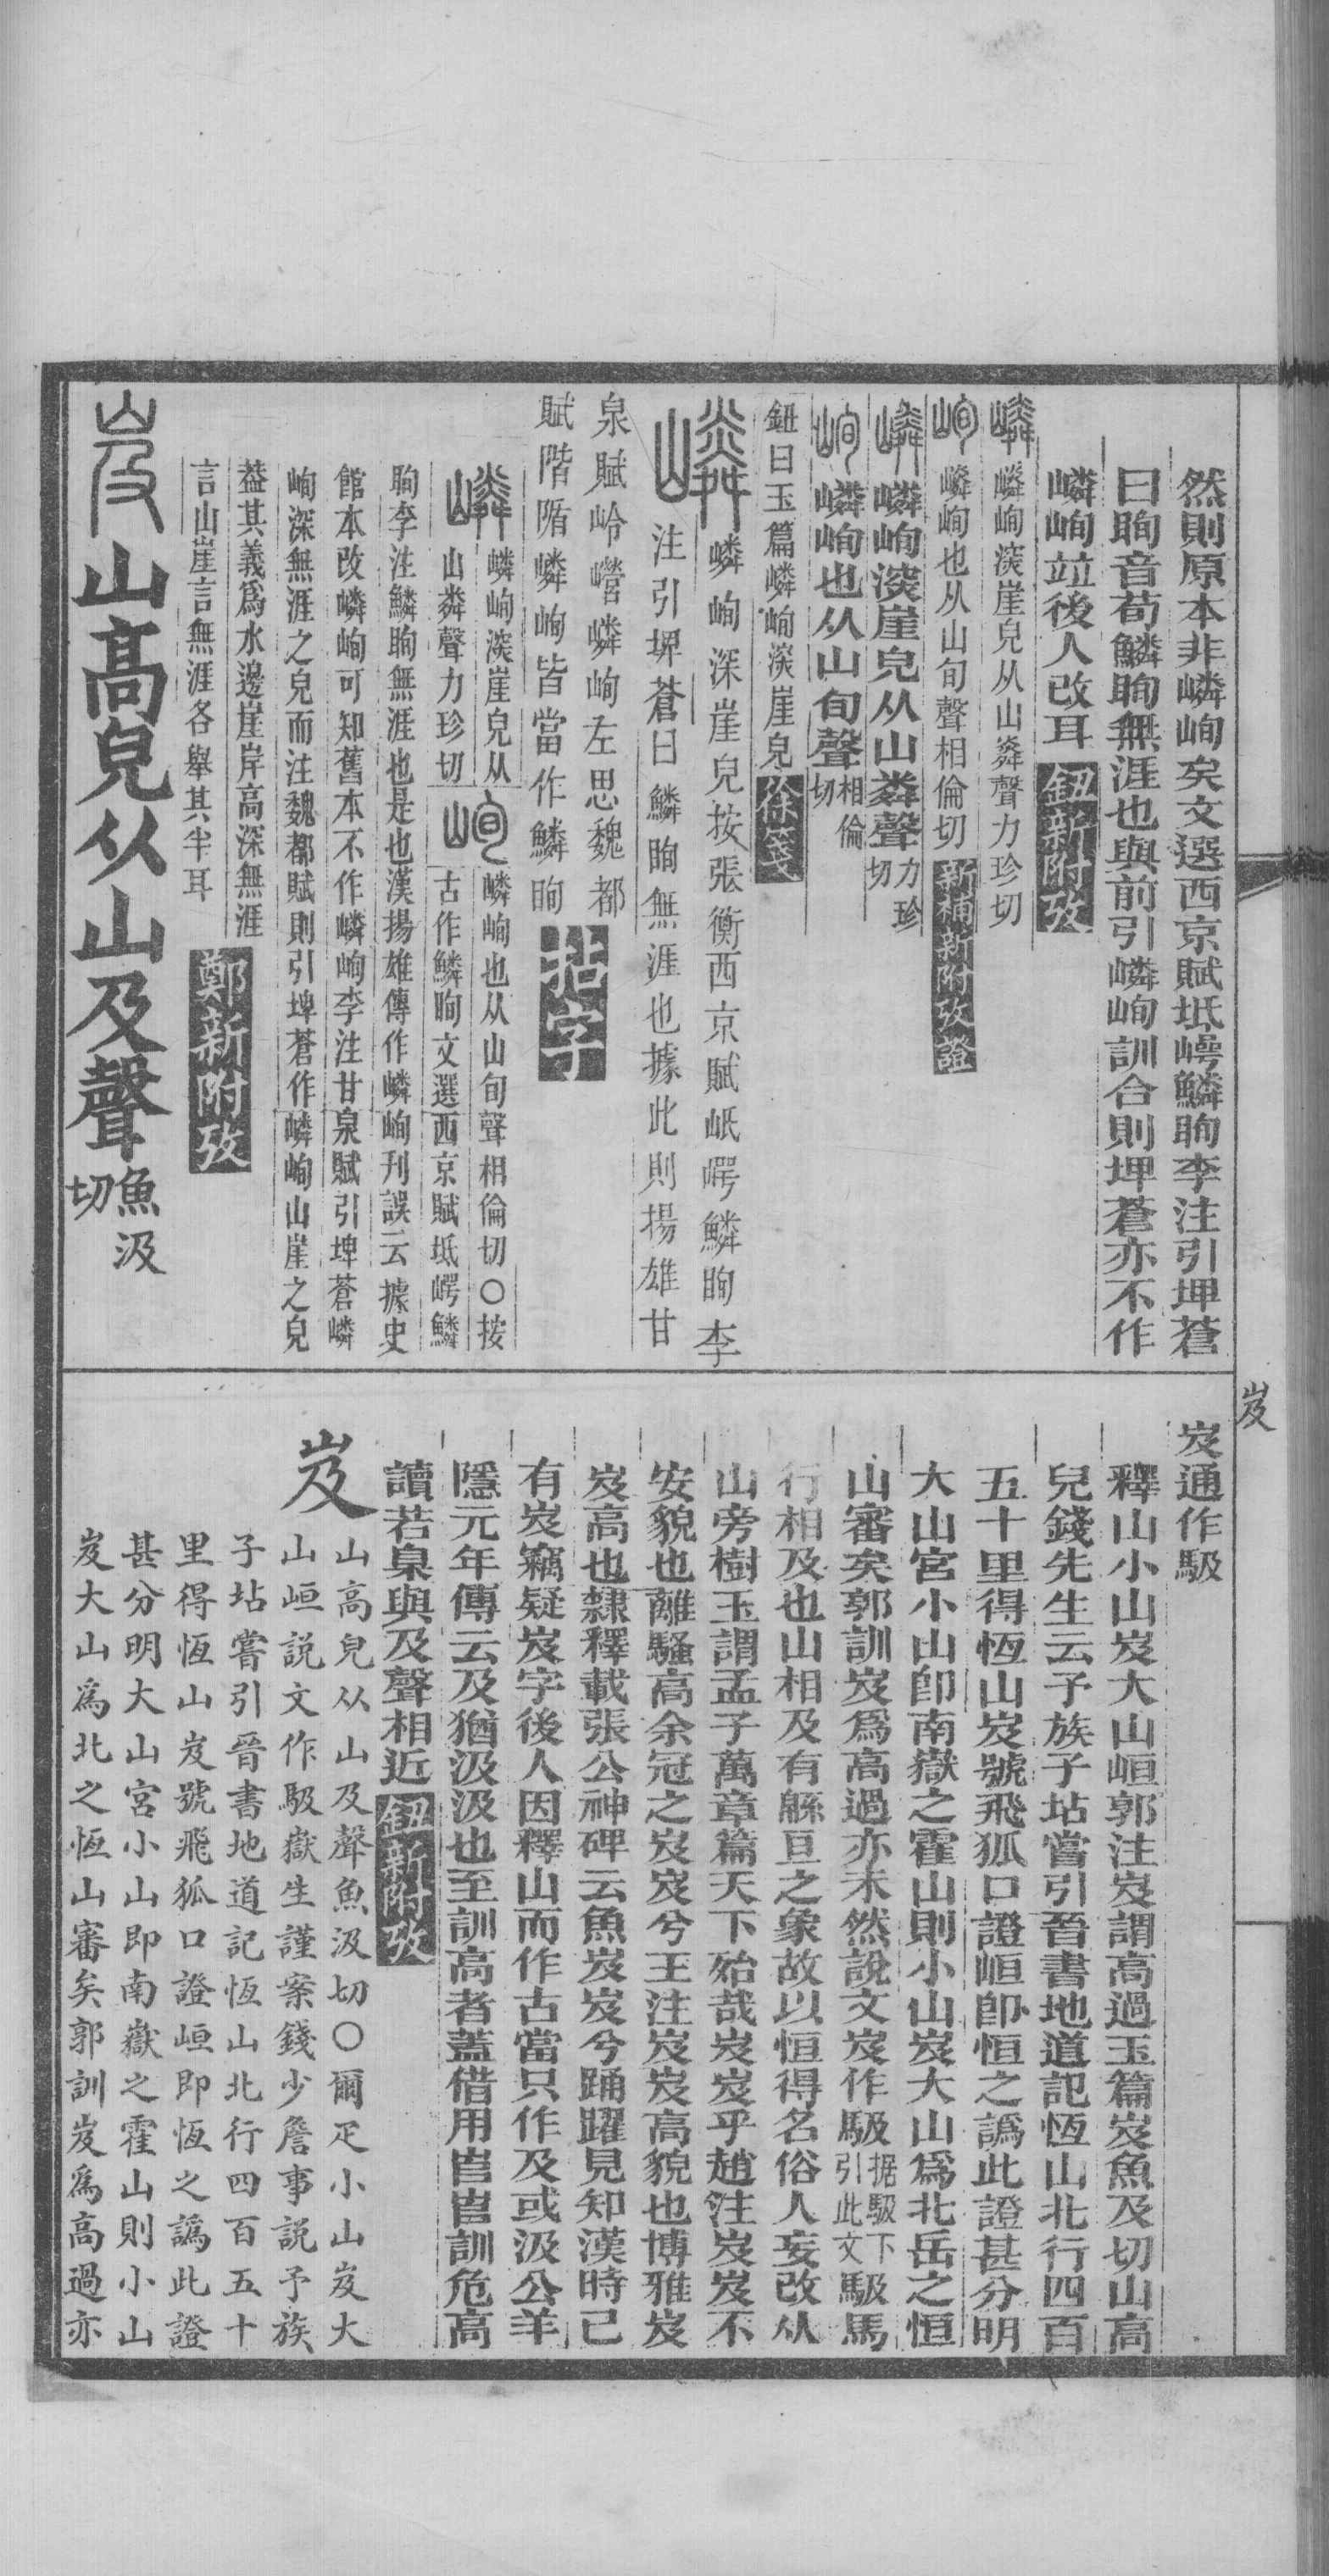 然則原本非嶙峋矣文選西京賦坻崿鱗眴李注引埤蒼
曰眴音荀鱗眴無涯也與前引嶙峋訓合則埤蒼亦不作
嶙峋竝後人改耳鈕新附攷
嶙嶙峋深崖皃从山粦聲力珍切
峋嶙峋也从山旬聲相倫切新補新附攷證
嶙嶙峋深崖皃从山粦聲力珍切
峋嶙峋也从山旬聲相倫切
鈕曰玉篇嶙峋深崖皃徐箋
嶙嶙峋深崖皃按張衡西京賦岻崿鱗眴李
注引埤蒼曰鱗眴無涯也據此則揚雄甘
泉賦岭巆嶙峋左思魏都
賦階陏嶙峋皆當作鱗眴拈字
嶙嶙峋深崖皃从
山粦聲力珍切
峋嶙峋也从山旬聲相倫切〇按
古作鱗眴文選西京賦坻崿鱗
眴李注鱗眴無涯也是也漢揚雄傳作嶙峋刊誤云據史
館本改嶙峋可知舊本不作嶙峋李注甘泉賦引埤蒼嶙
峋深無涯之皃而注魏都賦則引埤蒼作嶙峋山崖之皃
葢其義爲水邊崖岸高深無涯
言山崖言無涯各舉其半耳鄭新附攷
岌山高皃从山及聲魚汲切
岌
岌通作馺
釋山小山岌大山峘郭注岌謂高過玉篇岌魚及切山高
皃錢先生云予族子坫嘗引晉書地道記恆山北行四百
五十里得恆山岌號飛狐口證峘卽恒之譌此證甚分明
大山宮小山卽南嶽之霍山則小山岌大山爲北岳之恒
山審矣郭訓岌爲高過亦未然說文岌作馺据馺下引此文馺馬
行相及也山相及有緜亘之象故以恒得名俗人妄改从
山旁樹玉謂孟子萬章篇天下殆哉岌岌乎趙注岌岌不
安貌也離騷高余冠之岌岌兮王注岌岌高貌也博雅岌
岌高也隸釋載張公神碑云魚岌岌兮踊躍見知漢時已
有岌竊疑岌字後人因釋山而作古當只作及或汲公羊
隱元年傳云及猶汲汲也至訓高者蓋借用㠯㠯訓危高
讀若臬與及聲相近鈕新附攷
岌山高皃从山及聲魚汲切〇爾疋小山岌大
山峘説文作馺嶽生謹案錢少詹事説予族
子坫嘗引晉書地道記恆山北行四百五十
里得恆山岌號飛狐口證峘即恆之譌此證
甚分明大山宮小山即南嶽之霍山則小山
岌大山爲北之恆山審矣郭訓岌爲高過亦